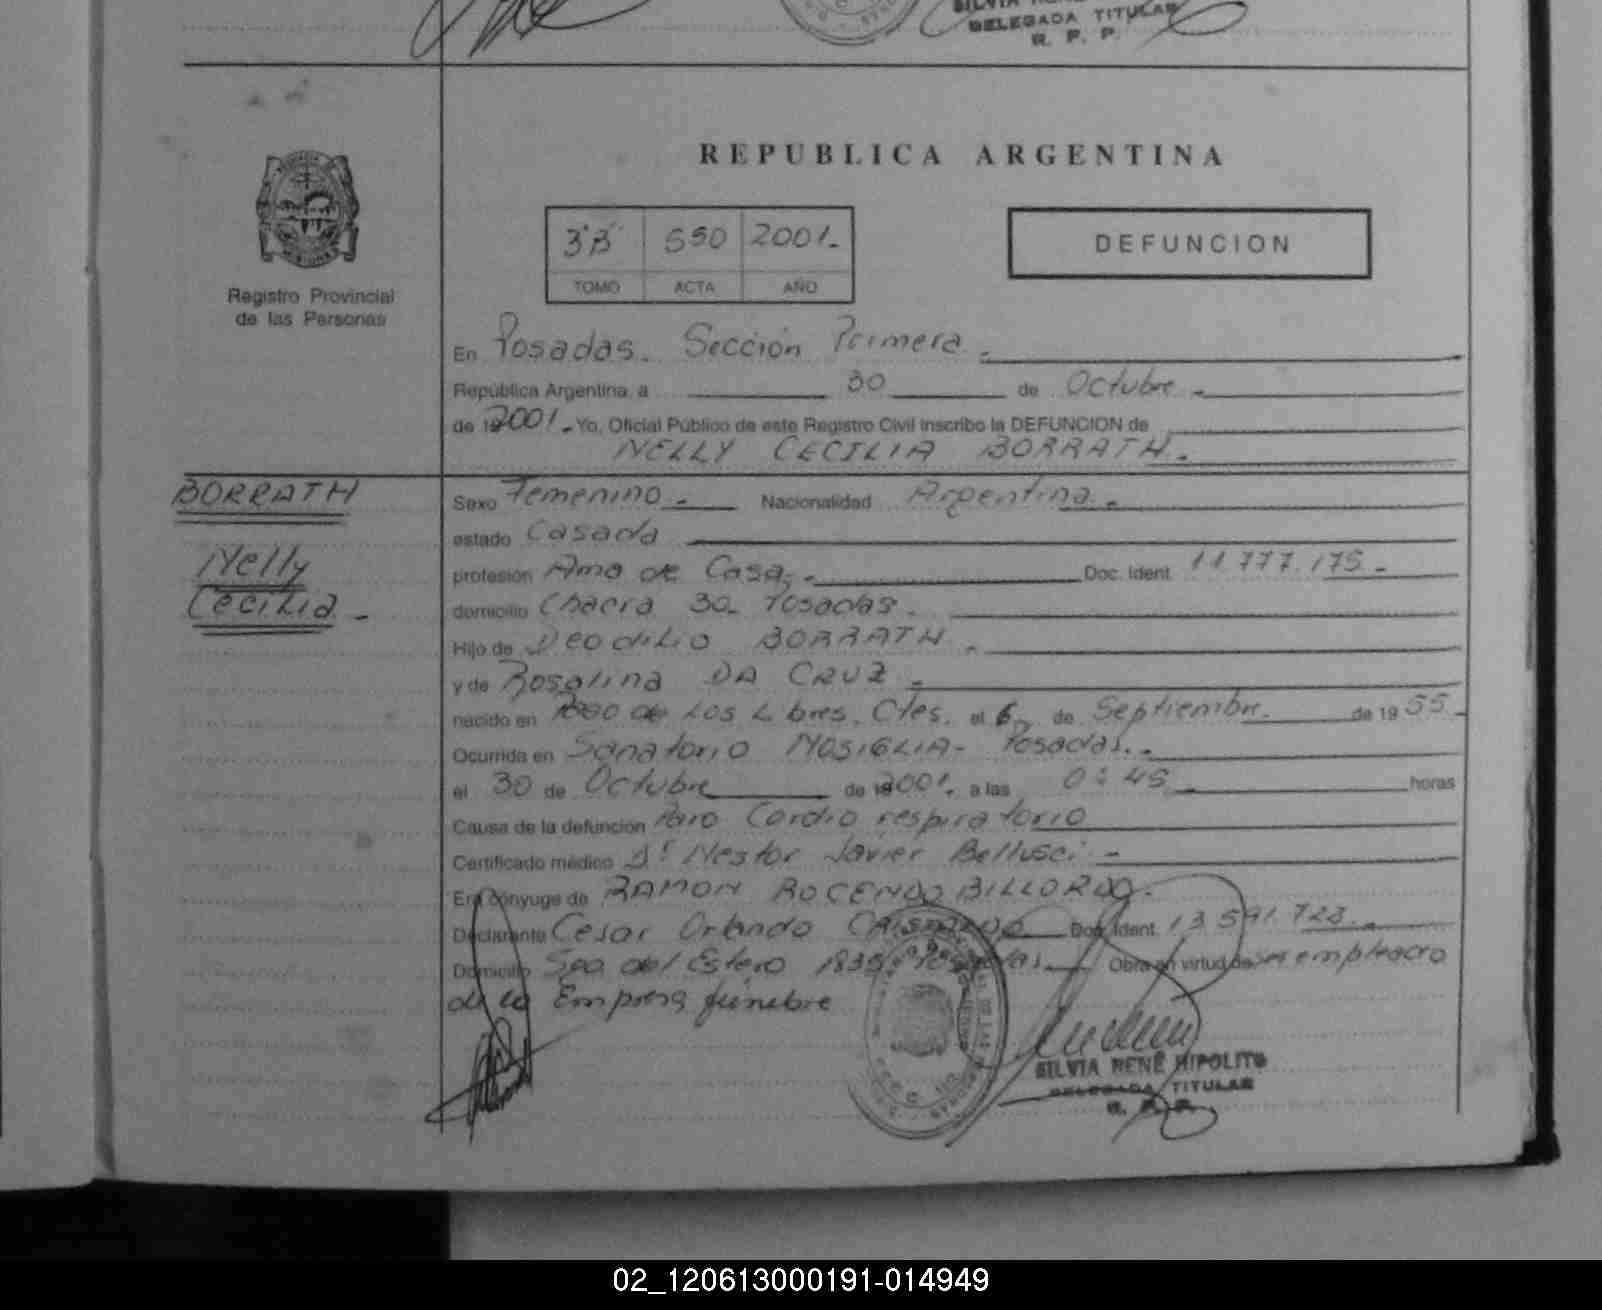 DELEGADA TITULAR
R. P. P.
REPUBLICA ARGENTINA
3"B" 550 2001.-
TOMO ACTA AÑO
DEFUNCION
Registro Provincial
de las Personas
En Posadas. Sección Primera.-
República Argentina, a 30 de Octubre.-
de 19 2001.- Yo, Oficial Público de este Registro Civil inscribo la DEFUNCION de
NELLY CECILIA BORRATH.-
BORRATH
Nelly
Cecilia.-
Sexo Femenino.- Nacionalidad Argentina.-
estado Casada
profesión Ama de Casa.- Doc. Ident. 11.777.175.-
domicilio Chacra 30- Posadas.-
Hijo de Deodilio BORRATH.-
y de Rosalina DA CRUZ.-
nacido en Paso de Los Libres. Ctes. el 6 de Septiembre.- de 19 55.-
Ocurrida en Sanatorio MOSIGLIA- Posadas.-
el 30 de Octubre de 19 2001. a las 0:45 horas
Causa de la defunción Paro Cardio respiratorio
Certificado médico Dr Nestor Javier Bellusci.-
Era cónyuge de RAMON ROCENDO BILLORDO.-
Declarante Cesar Orlando Doc. Ident. 13.591.723.-
Domicilio Sgo del Estero 1835 Posadas.- Obra en virtud de ser empleado
de la Empresa fúnebre
SILVIA RENÉ HIPOLITO
DELEGADA TITULAR
R. P. P.
02_120613000191-014949